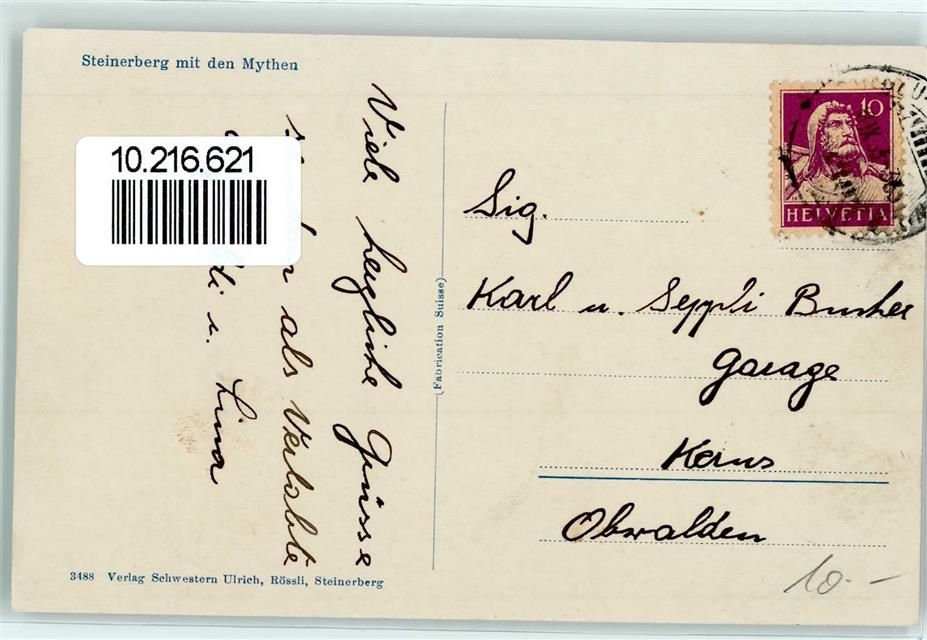 Steinerberg mit den Mythen
10.216.621
Viele herzliche Grüsse
als Verlobte
u. Lina
(Fabrication Suisse)
10
HELVETIA
Sig.
Karl u. Seppli Bucher
Garage
Kerns
Obwalden
3488 Verlag Schwestern Ulrich, Rössli, Steinerberg
10.-